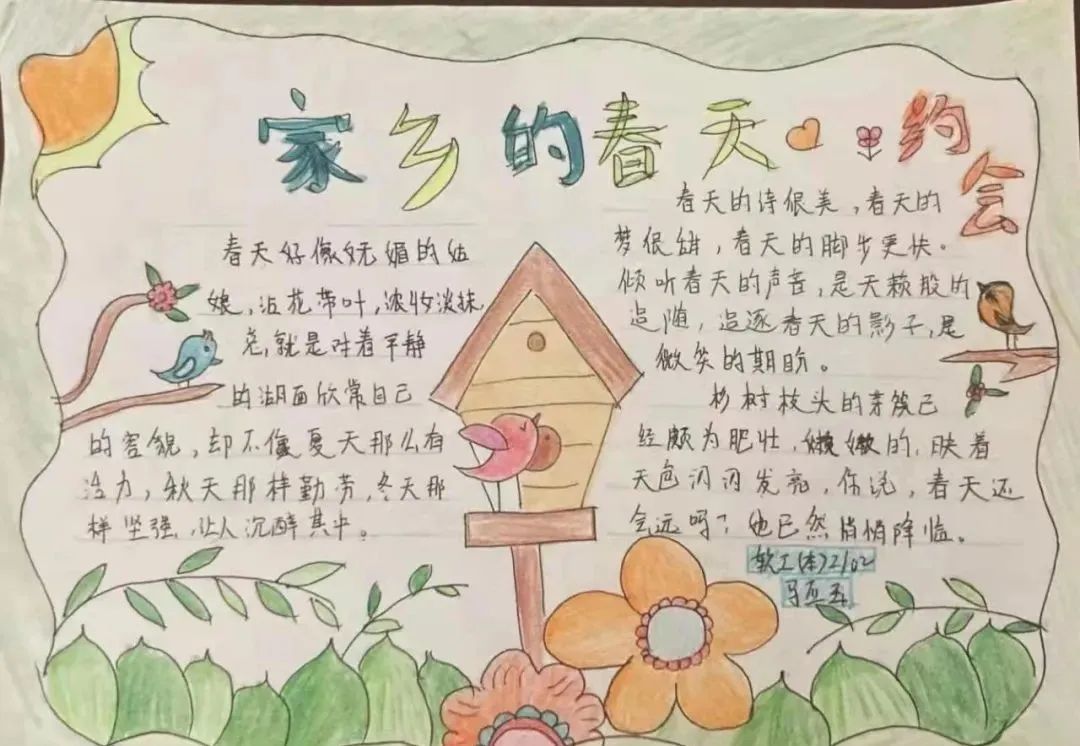 家乡的春天约会
春天好像妩媚的姑
娘，沾花带叶，浓妆淡抹
，就是对着平静
的湖面欣常自己
的容貌，却不像夏天那么有
活力，秋天那样勤劳，冬天那
样坚强，让人沉醉其中。
春天的诗很美，春天的
梦很甜，春天的脚步更快。
倾听春天的声音，是天籁般的
追随，追逐春天的影子，是
微笑的期盼。
杉树枝头的芽簇已
经颇为肥壮，嫩嫩的，映着
天色闪闪发亮，你说，春天还
会远吗？她已然悄悄降临。
软工(本)2102
马亚